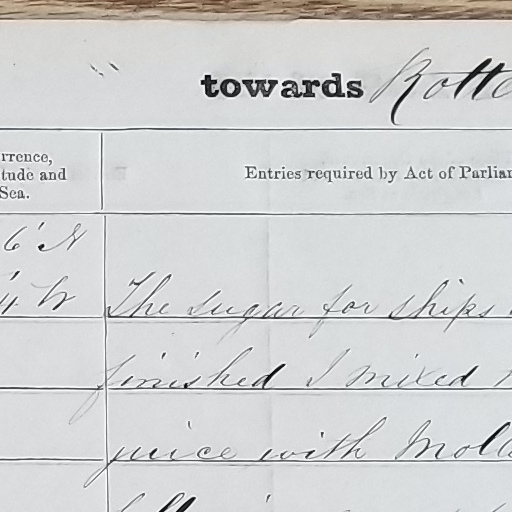 towards Rotte
rrence,
tude and
Sea.
Entries required by Act of Parlia
6' N
4' W
The sugar for ships
finished I mixed
juice with Mol